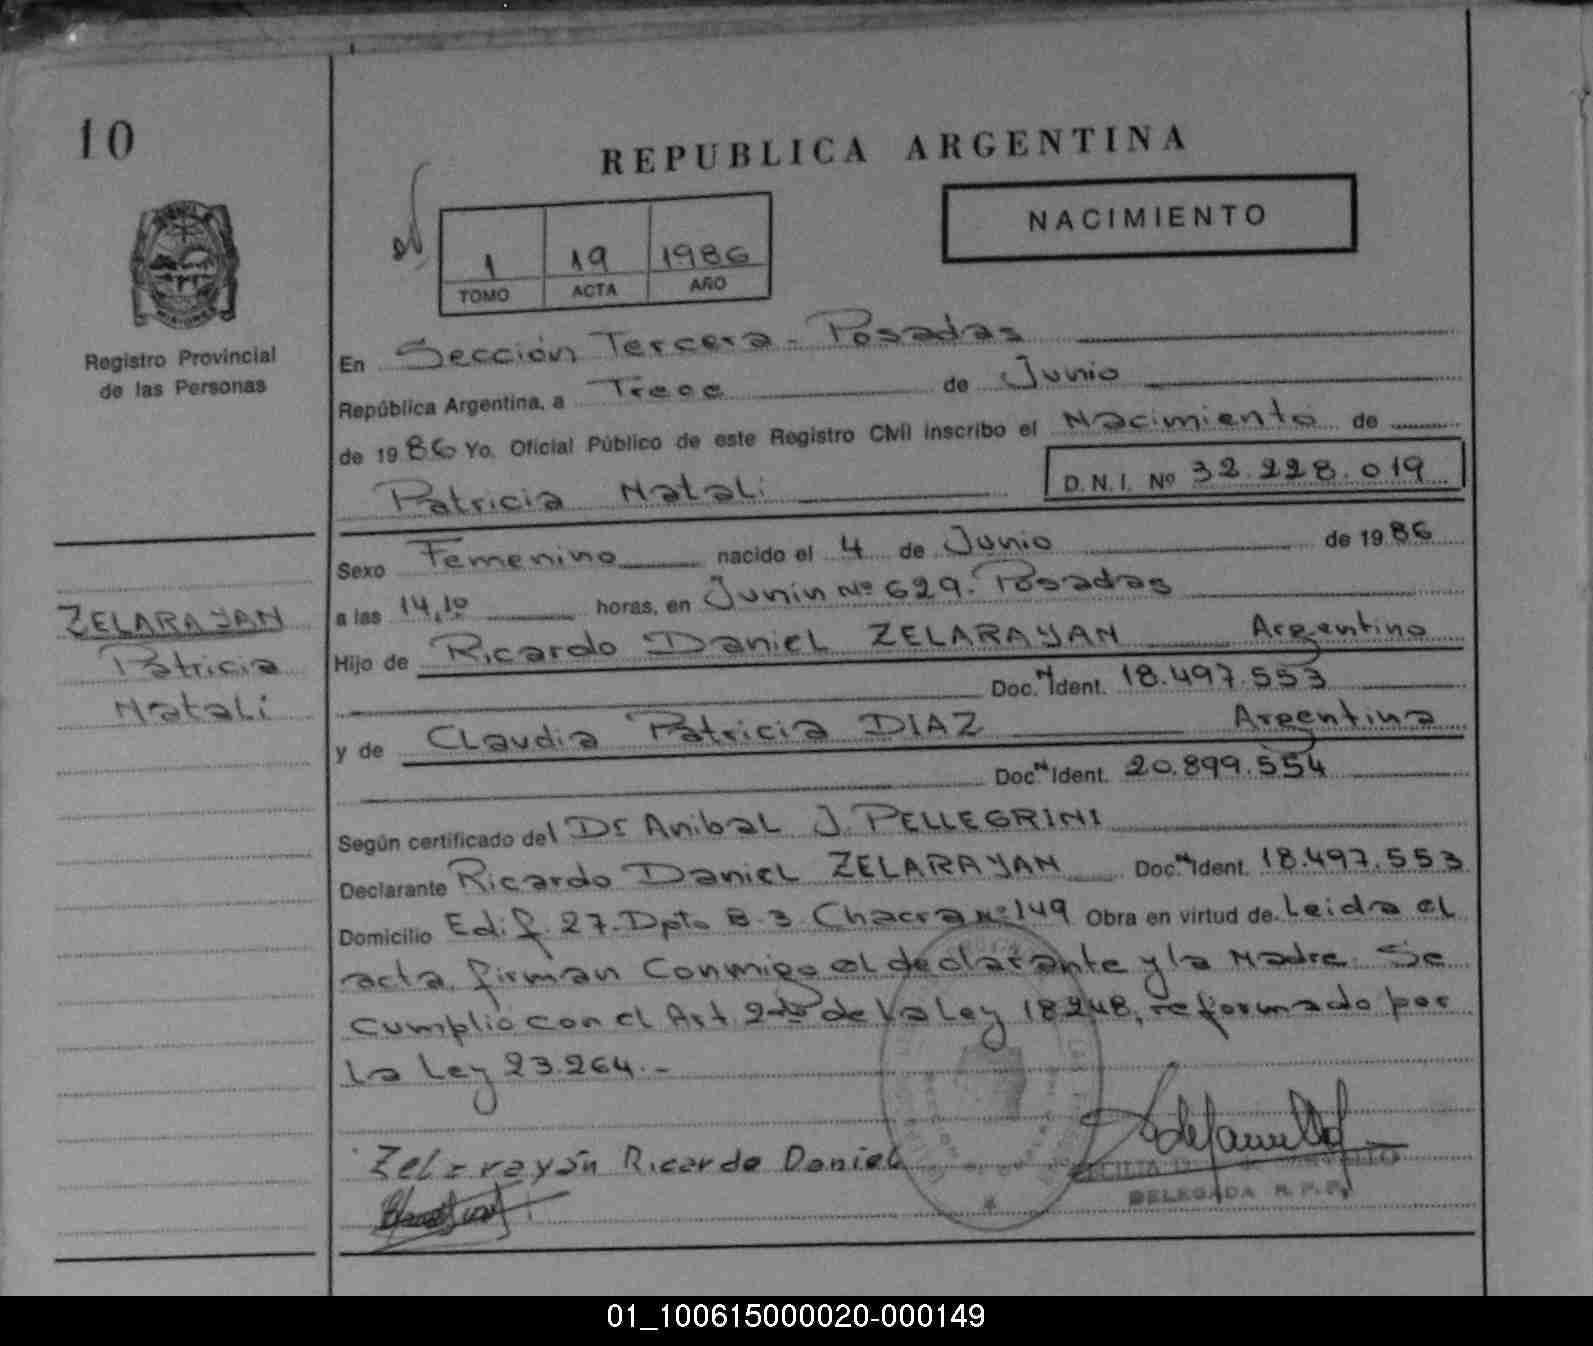 10
REPUBLICA ARGENTINA
NACIMIENTO
1 19 1986
TOMO ACTA AÑO
MISIONES
Registro Provincial
de las Personas
En Sección Tercera - Posadas
República Argentina, a Trece de Junio
de 1986 Yo, Oficial Público de este Registro Civil inscribo el Nacimiento de
Patricia Natali D.N.I. Nº 32.228.019
Sexo Femenino nacido el 4 de Junio de 1986
a las 14,10 horas, en Junin Nº 629. Posadas
Hijo de Ricardo Daniel ZELARAYAN Argentino
Doc. N Ident. 18.497.553
y de Claudia Patricia DIAZ Argentina
Doc. N Ident. 20.899.554
Según certificado del Dr Anibal J. PELLEGRINI
Declarante Ricardo Daniel ZELARAYAN Doc. N Ident. 18.497.553
Domicilio Edif. 27. Dpto B.3 Chacra Nº 149 Obra en virtud de Leida el
acta, firman Conmigo el declarante y la Madre. Se
cumplio con el Art 2do de la Ley 18248, reformado por
la Ley 23.264.-
Zelarayán Ricardo Daniel
DELEGADA R.P.P.
ZELARAYAN
Patricia
Natali
01_100615000020-000149